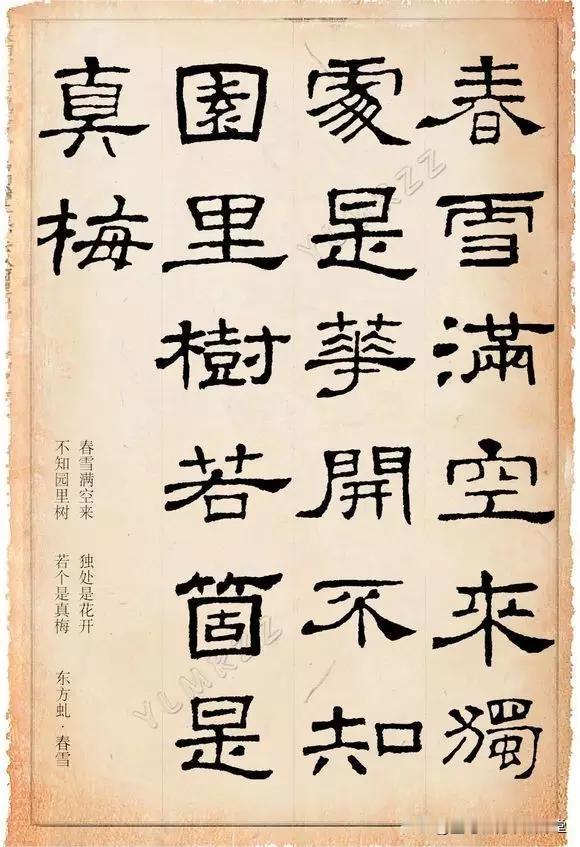 春雪滿空來獨
處是華開不知
園里樹若箇是
真梅
春雪满空来 独处是花开
不知园里树 若个是真梅
东方虬·春雪
YLMRZZ
YLMRZZ